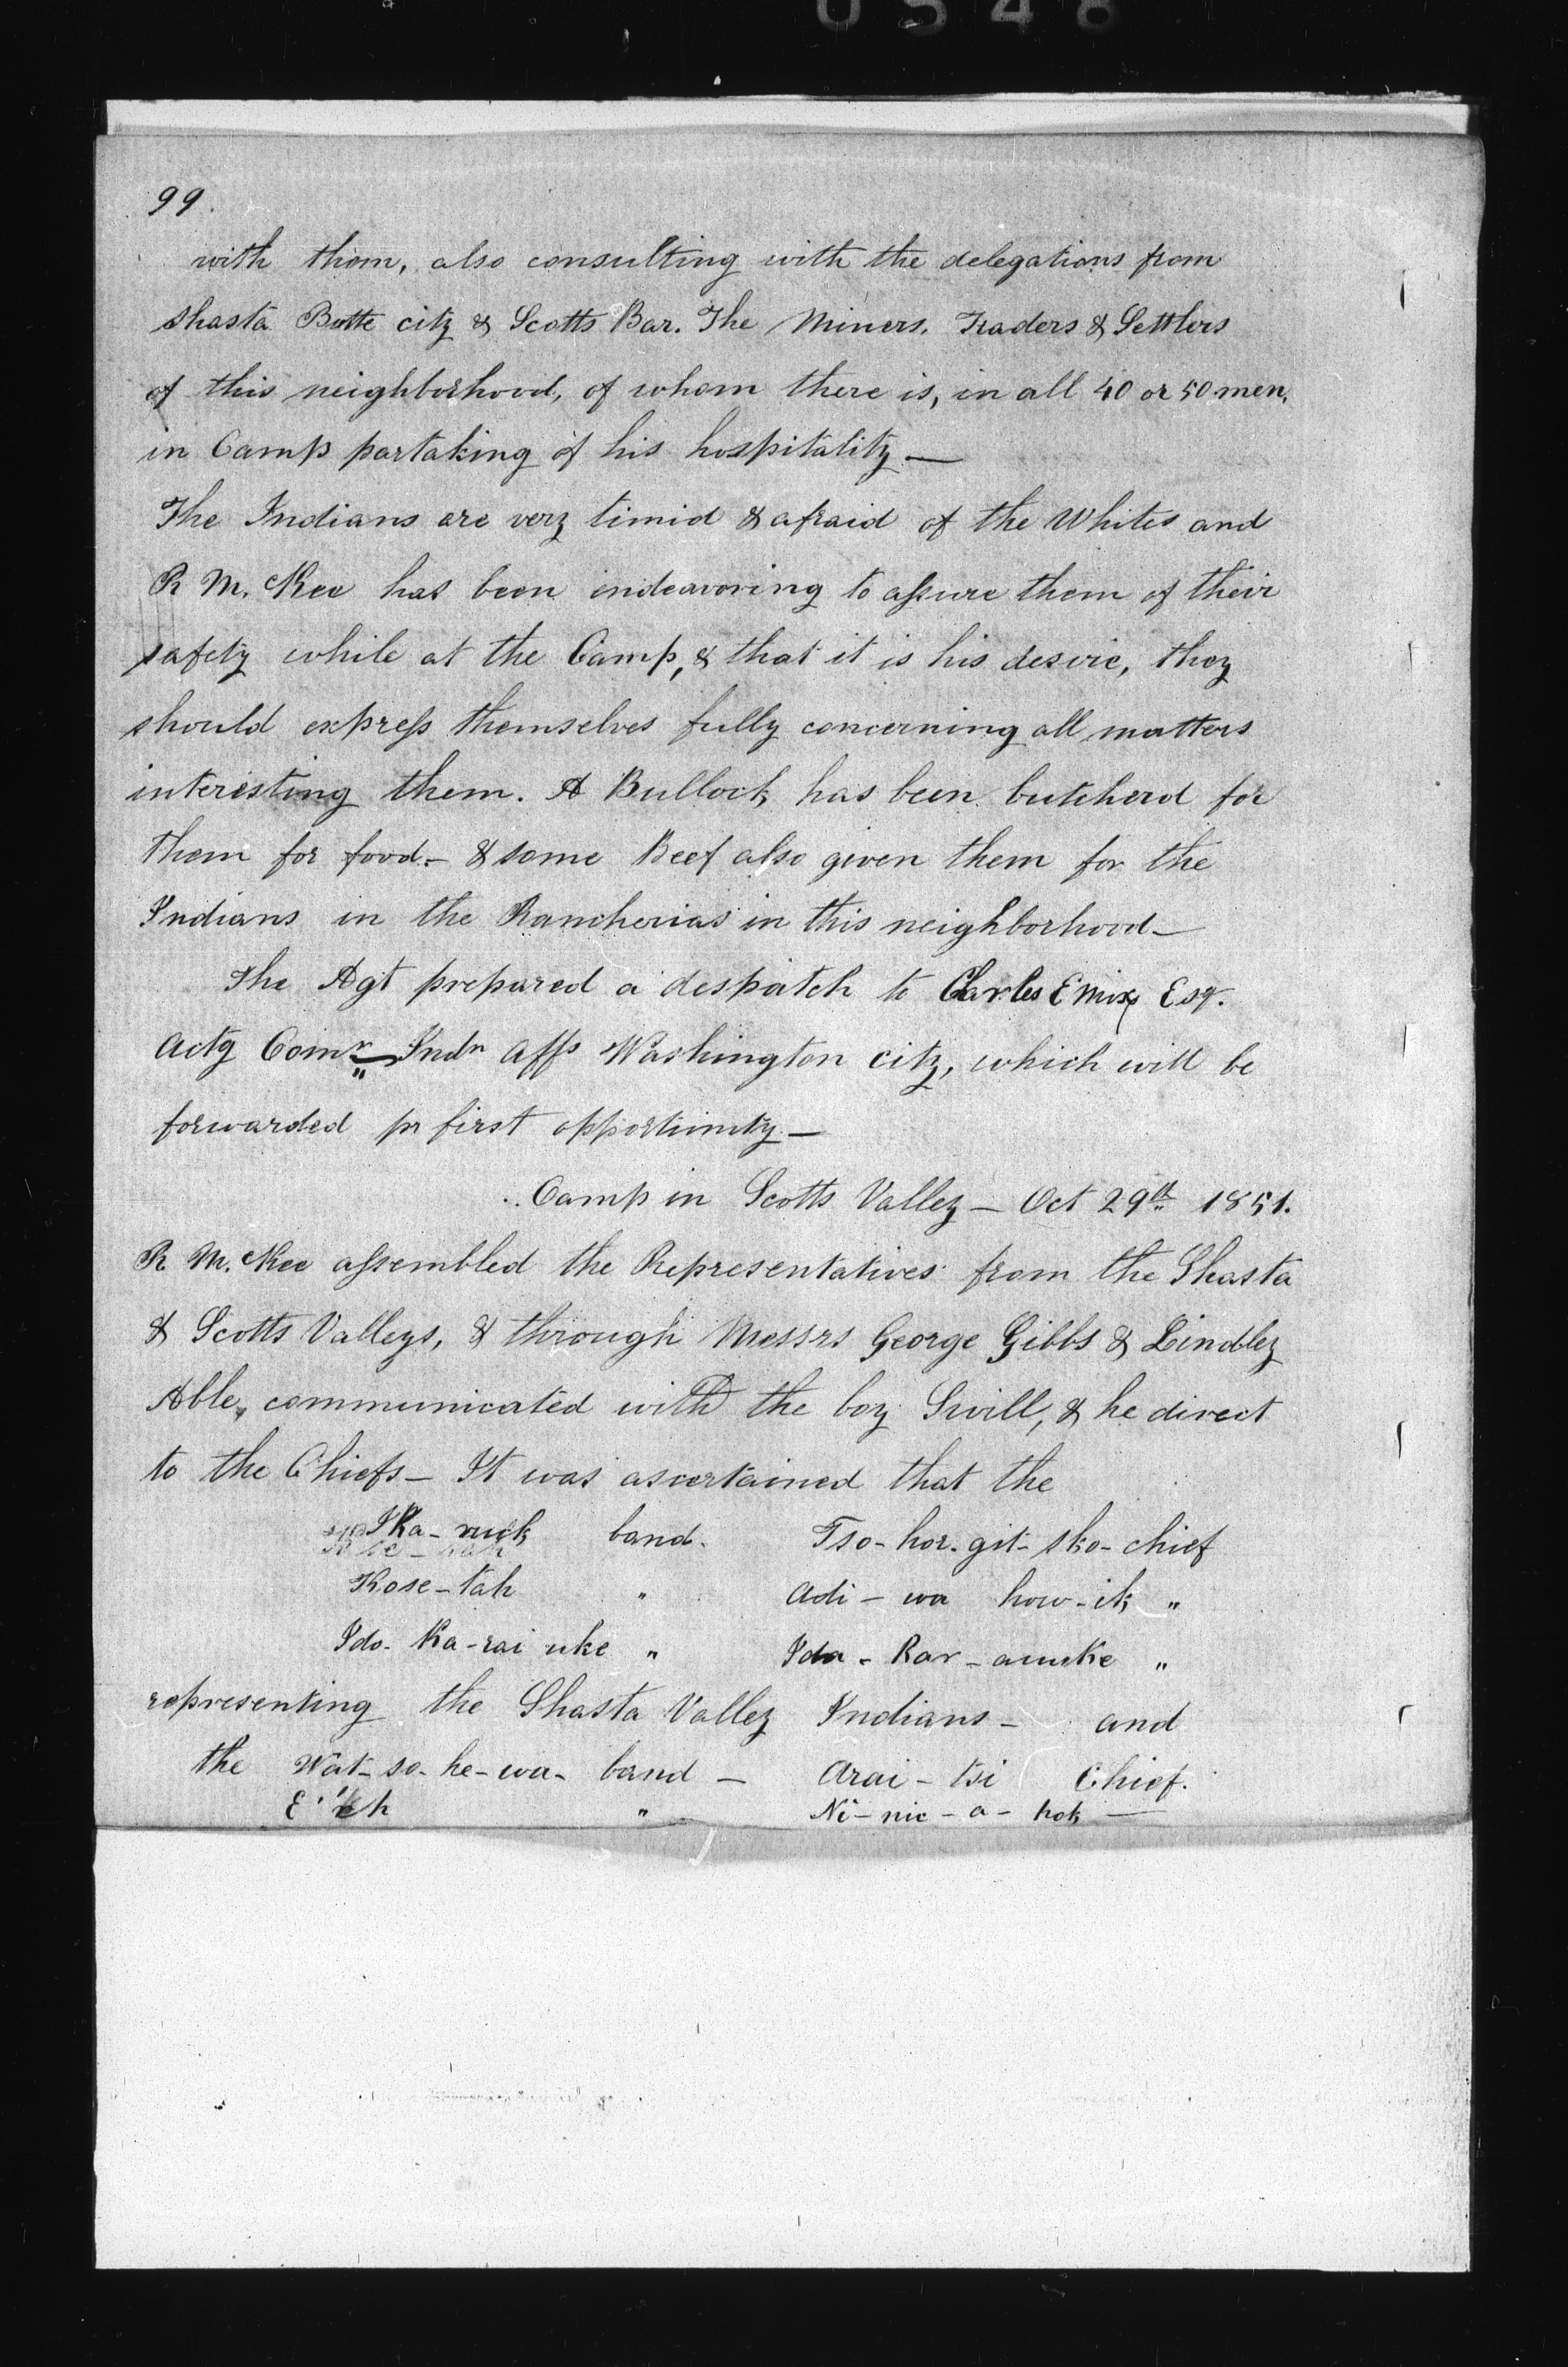 0548
99.
with them, also consulting with the delegations from
Shasta Butte city & Scotts Bar. The Miners, Traders & Settlers
of this neighborhood, of whom there is, in all 40 or 50 men,
in Camp partaking of his hospitality —
The Indians are very timid & afraid of the Whites and
R McKee has been endeavoring to assure them of their
safety while at the Camp, & that it is his desire, they
should express themselves fully concerning all matters
interesting them. A Bullock has been butcherd for
them for food — & some Beef also given them for the
Indians in the Rancherias in this neighborhood —
The Agt prepared a despatch to Charles E Mix Esq.
Actg Comr Indn Affs Washington city, which will be
forwarded pr first opportunity —
Camp in Scotts Valley — Oct 29th 1851.
R McKee assembled the Representatives from the Shasta
& Scotts Valleys, & through Messrs George Gibbs & Lindley
Able, communicated with the boy Swill, & he direct
to the Chiefs — It was ascertained that the
IKa-ruck band. Tso-hor-git-sko- chief
Kose-tah " Adi-wa how-ik "
Ido-Ka-rai uke " Ida-Kar-
representing the Shasta Valley Indians — and
the Wat-so-he-wa- band — Arai-tsi Chief.
" Ni-nic-a-hok —